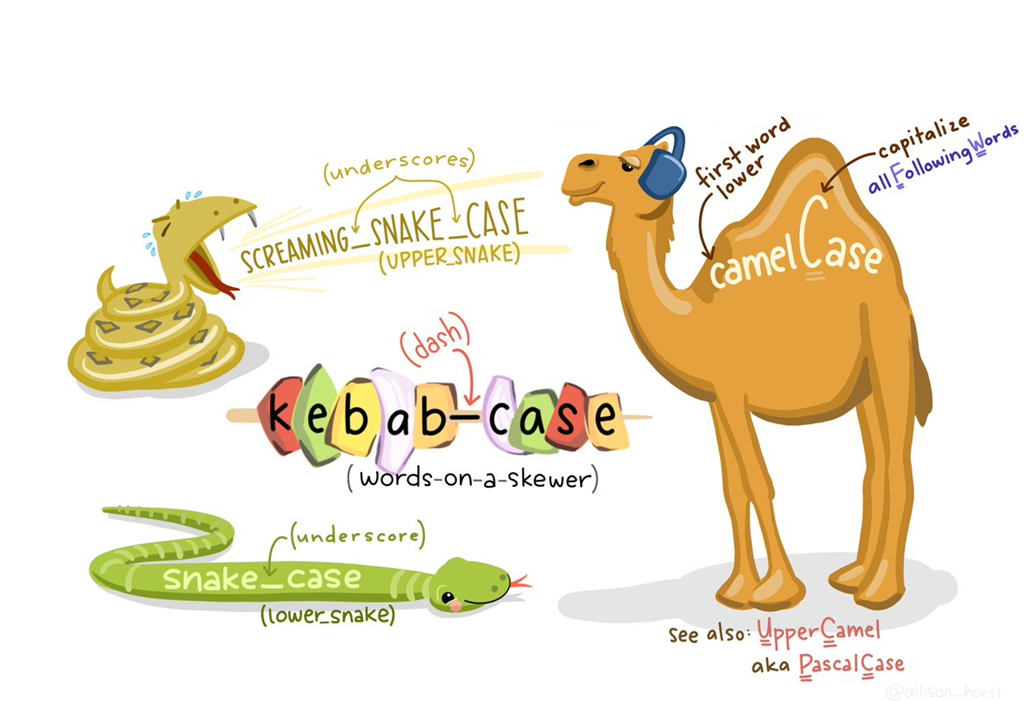 (underscores)
SCREAMING_SNAKE_CASE
(UPPER_SNAKE)
first word
lower
capitalize
allFollowingWords
camelCase
(dash)
kebab-case
(words-on-a-skewer)
(underscore)
snake_case
(lower_snake)
see also: UpperCamel
aka PascalCase
@allison_horst